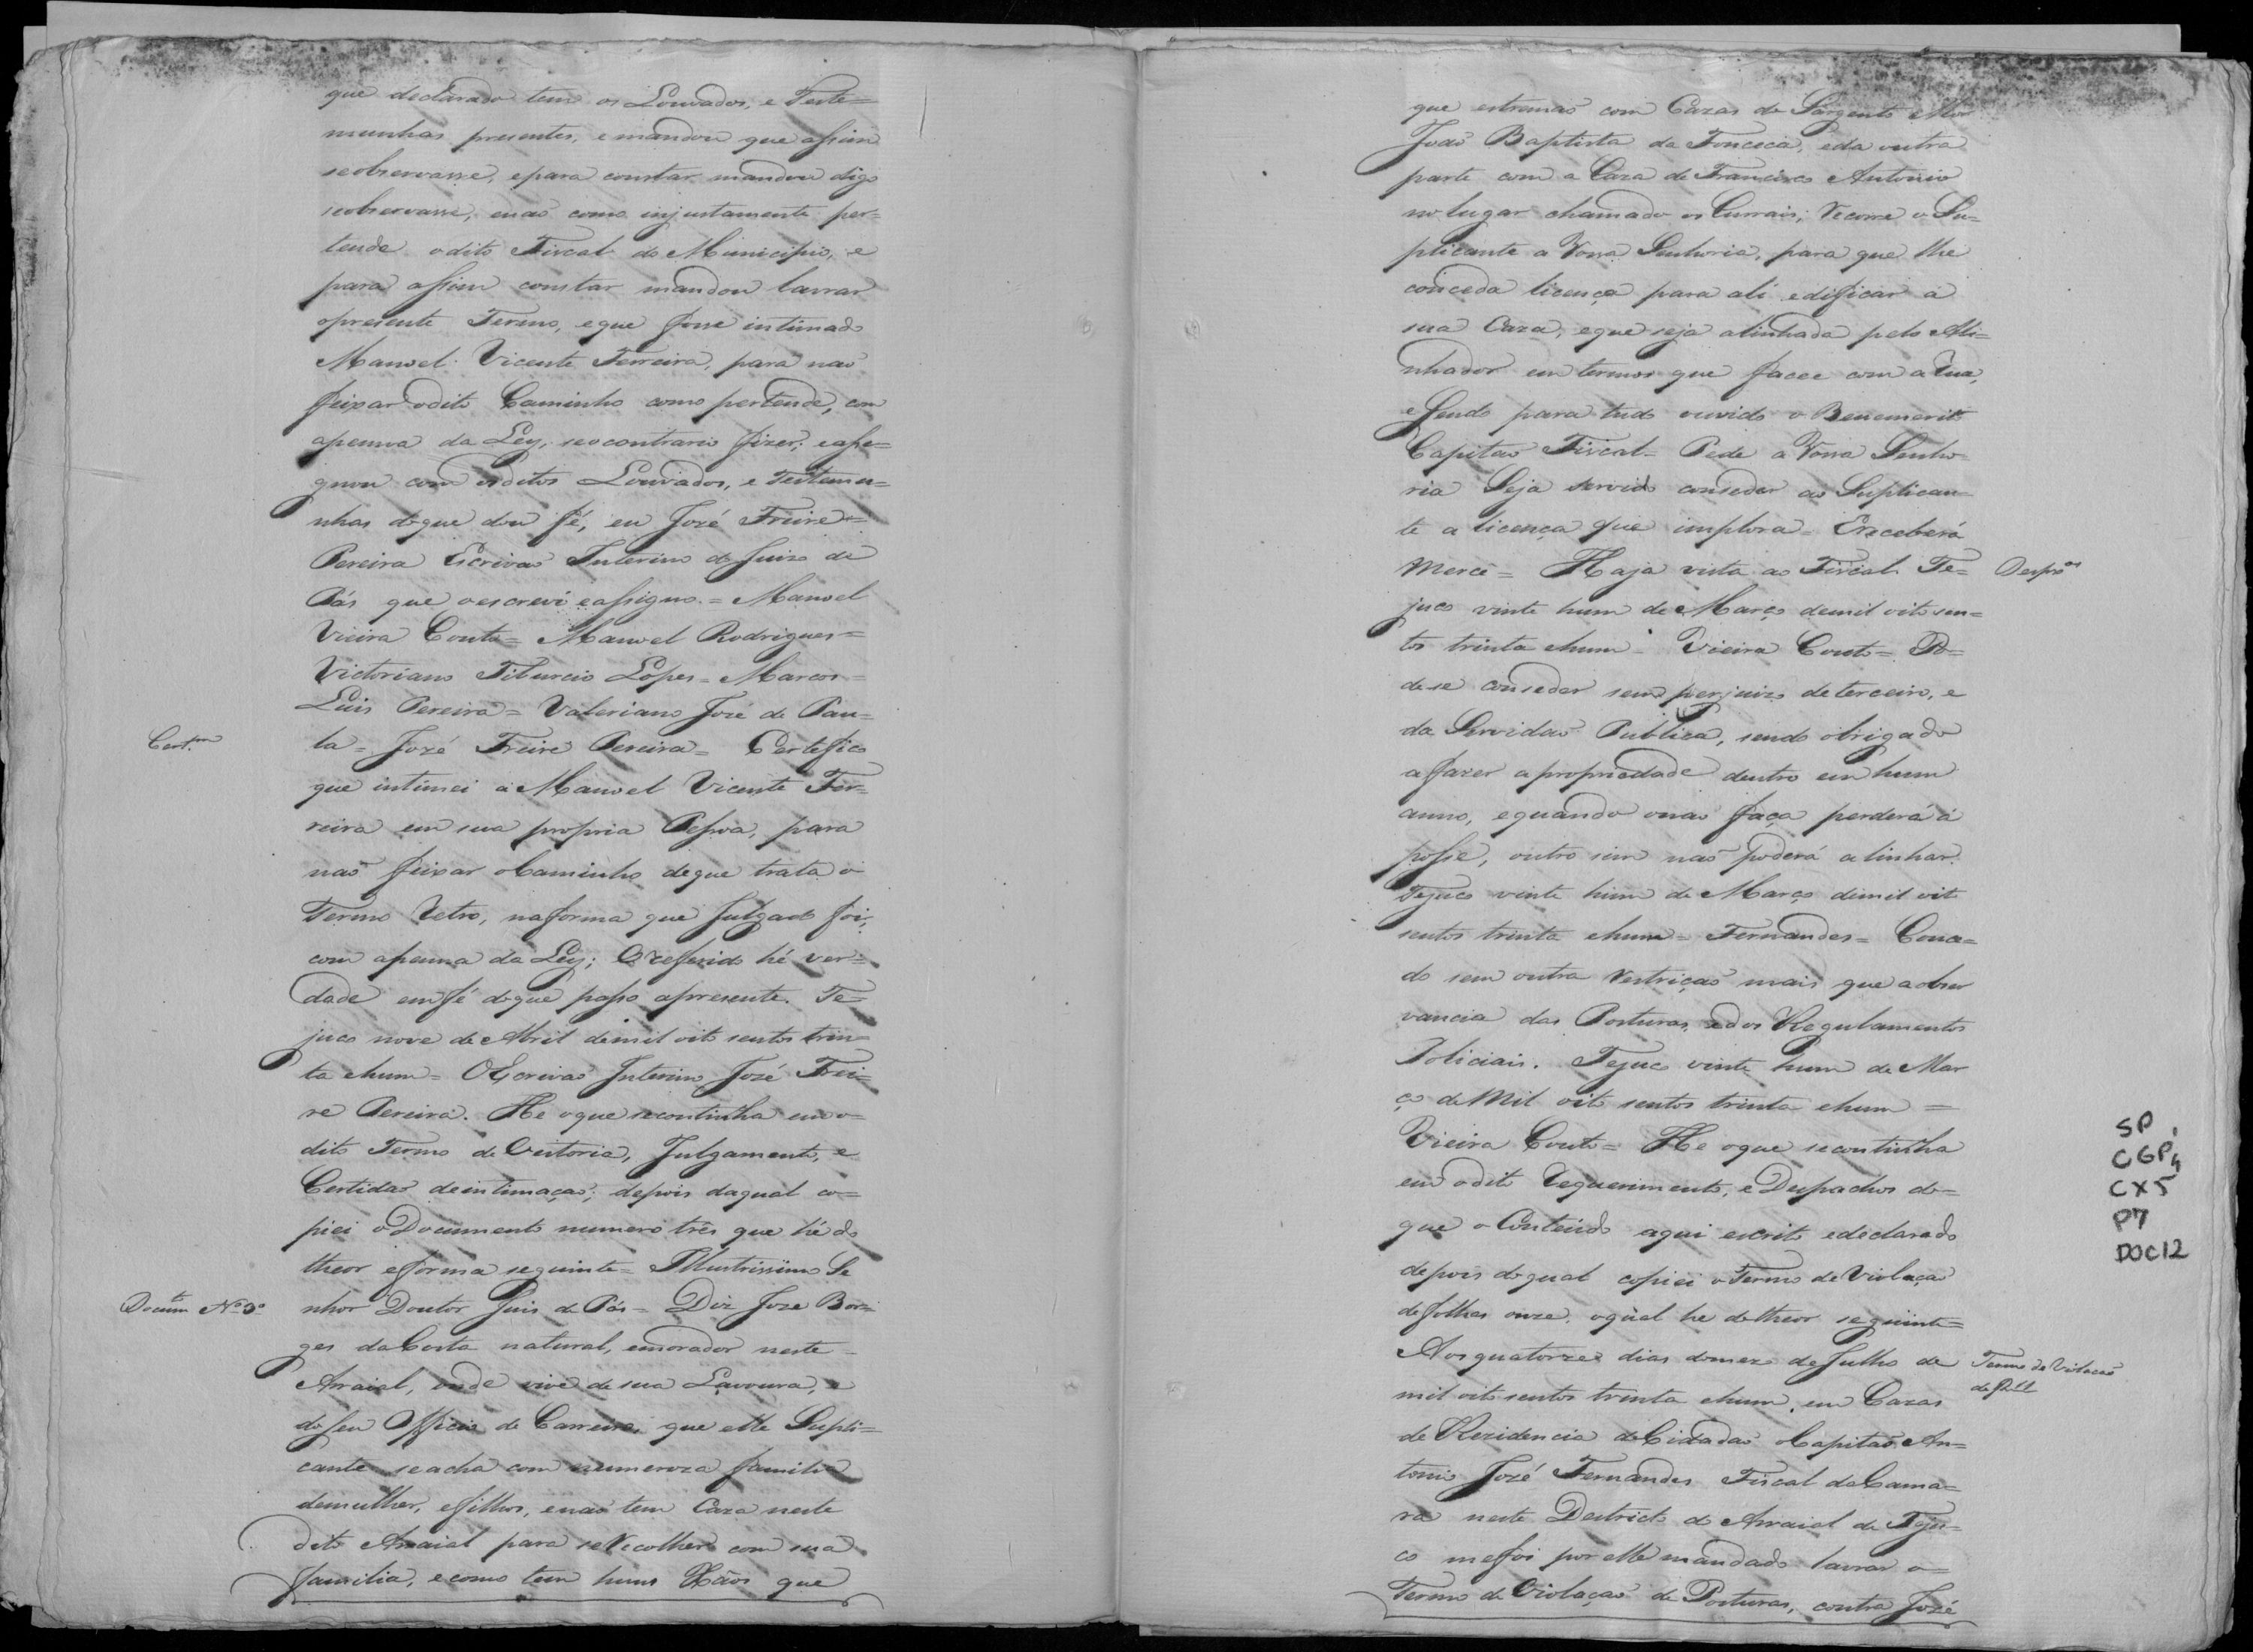 que declarado tem os Louvados, e Teste=
munhas presentes, e mandou que assim
seobservasse, epara constar mandou digo
seobservasse, enaõ como injustamente per=
tende odito Fiscal do Municipio, e
para assim constar mandou lavrar
opresente Termo, eque fosse intimado
Manoel Vicente Ferreira, para naõ
feixar odito Caminho como pertende, com
apenna da Ley, seocontrario fizer; easse=
gnou com osditos Louvados, e Testemu=
nhas doque dou fé, eu José Freire=
Pereira Escrivaõ Interino do Juizo de
Pás que oescrevi eassigno.= Manoel
Vieira Couto= Manoel Rodrigues=
Victoriano Tiburcio Lopes= Marcos=
Luis Pereira= Valeriano José de Pau=
Cert.am
la= José Freire Pereira= Certefico
que intimei a Manoel Vicente Fer=
reira em sua propria Pessoa, para
naõ feixar oCaminho deque trata o
Termo Retro, naforma que Julgado foi,
com apenna da Ley; O refferido hé ver=
dade emfé doque passo apresente. Te=
juco nove de Abril demil oito sentos trin=
ta ehum= OEscrivaõ Interino José Frei=
re Pereira. He oque secontinha em o
dito Termo de Vestoria, Julgamento, e
Certidaõ deintimaçaõ; depois daqual co=
piei oDocumento numero três que hé do
theor eforma seguinte= Illustrissimo Se
Docum.to Nº 3º
nhor Doutor Juis de Pás= Diz Joze Bor=
ges daCosta natural, emorador neste
Arraial, onde vive de sua Lavoura, e
doseu Officio de Carreiro, que elle Supli=
cante seacha com numeroza familia
demulher, efilhos, enaõ tem Caza neste
dito Arraial para seRecolher com sua
familia, ecomo tem huns Xãos que
que estremaõ com Cazas do Sargento Mor
Joaõ Baptista da Fonceca, eda outra
parte com a Caza de Francisco Antonio
nolugar chamado os Currais; Recorre o Su=
plicante a Vossa Senhoria, para que lhe
conceda licença para ali edificar a
sua Caza, eque seja alinhada pelo Ali=
nhador em termos que facee com a Rua,
eSendo para tudo ouvido o Benemerito
Capitaõ Fiscal= Pede a Vossa Senho=
ria Seja servido conseder ao Suplican=
te a licença que implora= Ereceberá
Merce= Haja vista ao Fiscal. Te=
Desp.os
juco vinte hum de Março demil oito sen=
tos trinta ehum= Vieira Couto= Po=
dese conseder sem perjuizo deterceiro, e
da Servidaõ Publica, sendo obrigado
afazer apropriedade dentro em hum
anno, equando onaõ faça perderá a
posse, outro sim naõ poderá alinhar.
Tejuco vinte hum de Março demil oito
sentos trinta ehum= Fernandes= Conce=
do sem outra Restriçaõ mais que aobser
vancia das Posturas, edos Regulamentos
Policiais. Tejuco vinte hum de Mar
ço de Mil oito sentos trinta ehum=
Vieira Couto= He oque secontinha
em odito Requerimento, e Despachos do=
que o Conteúdo aqui escrito edeclarado
depois doqual copiei oTermo de Violaçaõ
defolhas onze, oqual he dotheor seguinte=
Aosquatorze dias domez deJulho de
Termo de Violacaõ
de f. 11
mil oito sentos trinta ehum, em Cazas
de Rezidencia doCidadaõ oCapitaõ An=
tonio José Fernandes Fiscal daCama=
ra neste Destricto do Arraial do Teju=
co mefoi por elle mandado lavrar o=
Termo de Violaçaõ de Posturas, contra José
SP,
CGP4
CX5
P7
DOC12